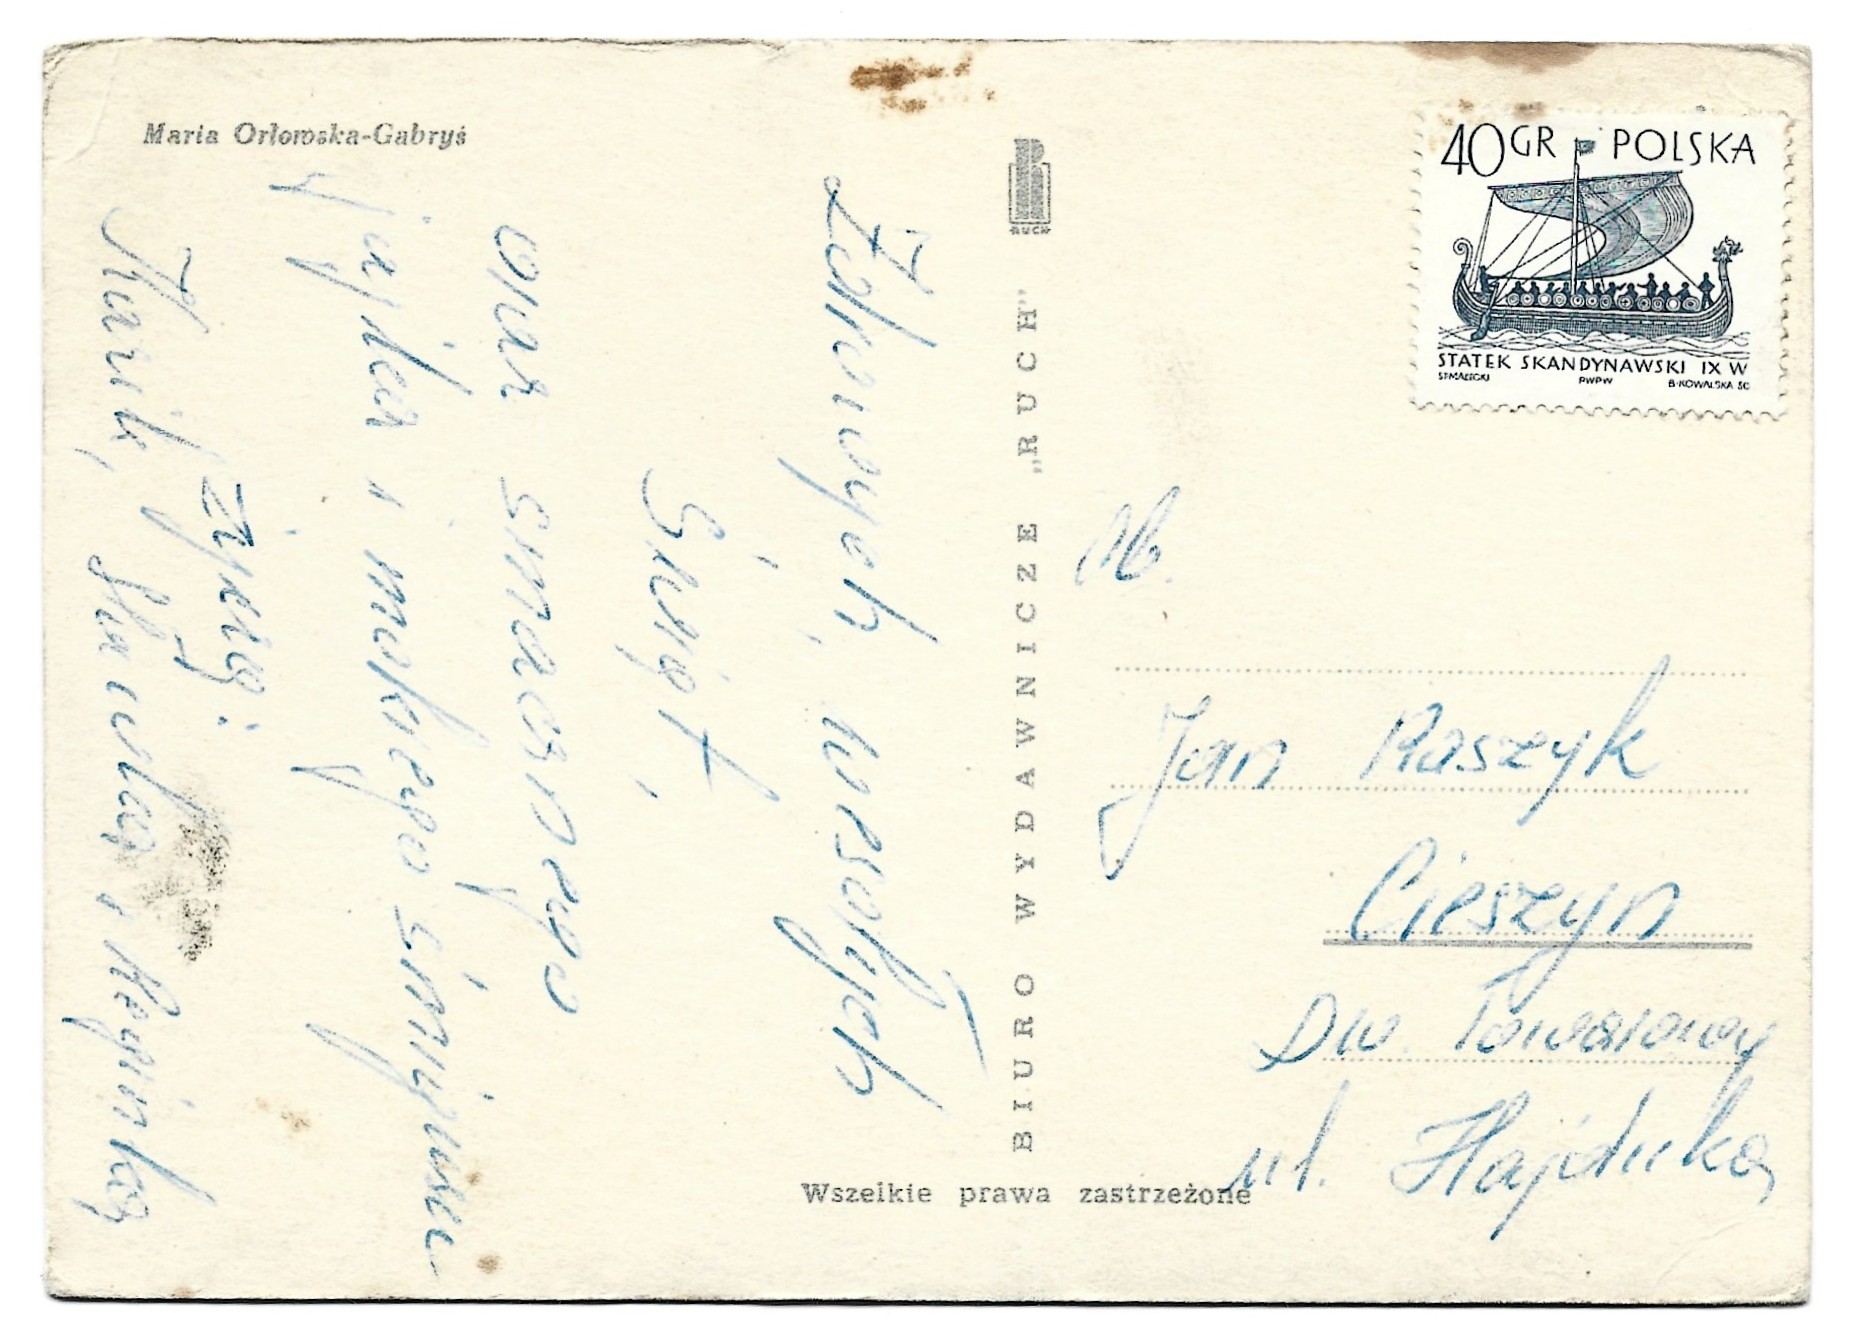 Maria Orłowska-Gabryś
Zdrowych, wesołych
Świąt,
oraz smacznego
jajka i mokrego śmigusu
życzą:
Marik, Sławka i Reginka
RUCH
BIURO WYDAWNICZE „RUCH"
Wszelkie prawa zastrzeżone
40 GR POLSKA
STATEK SKANDYNAWSKI IX W
ST.MAŁECKI PWPW B.KOWALSKA SC
Ob.
Jan Raszyk
Cieszyn
Dw. Towarowy
ul. Hajduka